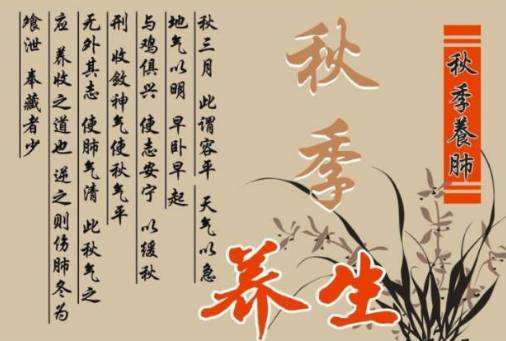 秋季養肺
秋季
养生
秋三月 此谓容平 天气以急
地气以明 早卧早起
与鸡俱兴 使志安宁 以缓秋
刑 收敛神气使秋气平
无外其志 使肺气清 此秋气之
应 养收之道也 逆之则伤肺冬为
飧泄 奉藏者少